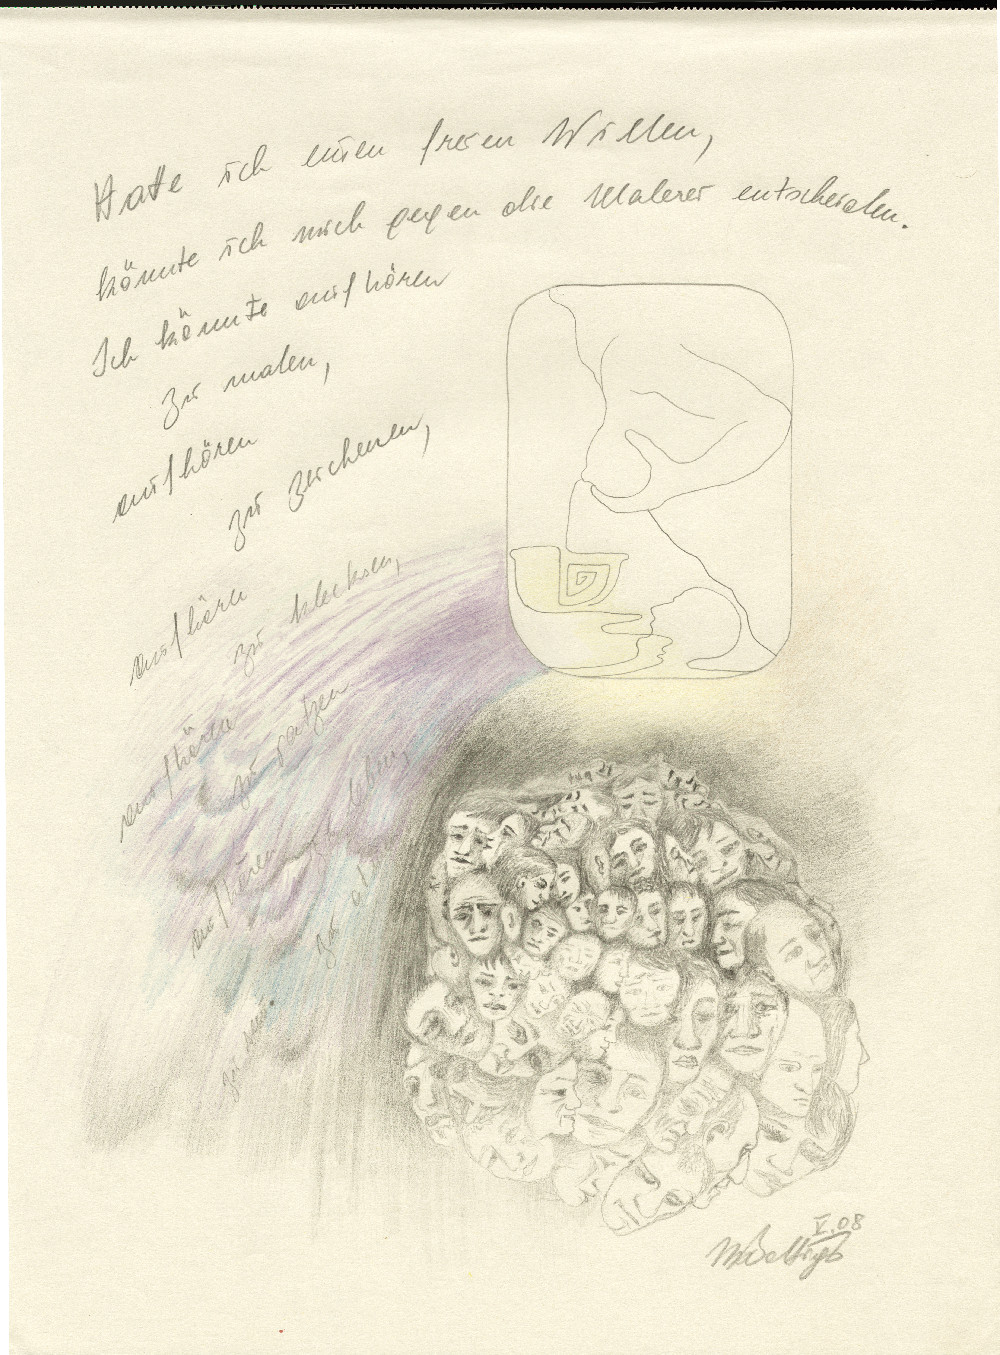 Hatte ich einen freien Willen,
könnte ich mich gegen die Malerei entscheiden.
Ich könnte aufhören
zu malen,
aufhören
zu zeichnen,
aufhören
zu klecksen,
aufhören
zu patzen
aufhören
zu
zu sein.
V.08